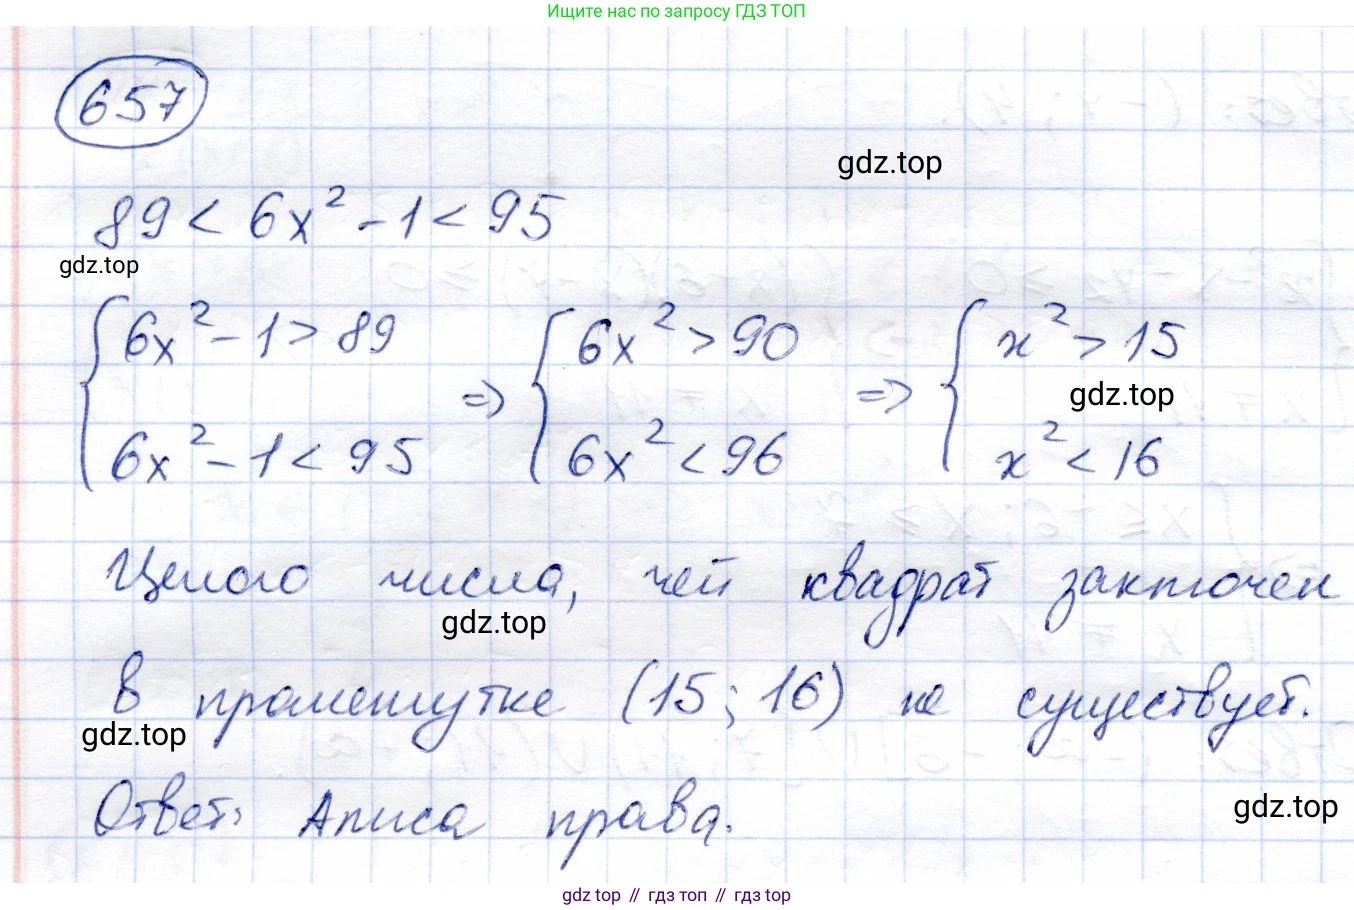 Ищите нас по запросу ГДЗ ТОП
657
gdz.top
89 < 6x² - 1 < 95
gdz.top
{ 6x² - 1 > 89 => { 6x² > 90 => { x² > 15
gdz.top
6x² - 1 < 95 6x² < 96 x² < 16
Целого числа, чей квадрат заключен
gdz.top
в промежутке (15; 16) не существует.
gdz.top
Ответ: Алиса права.
gdz.top
gdz top // гдз топ // gdz top